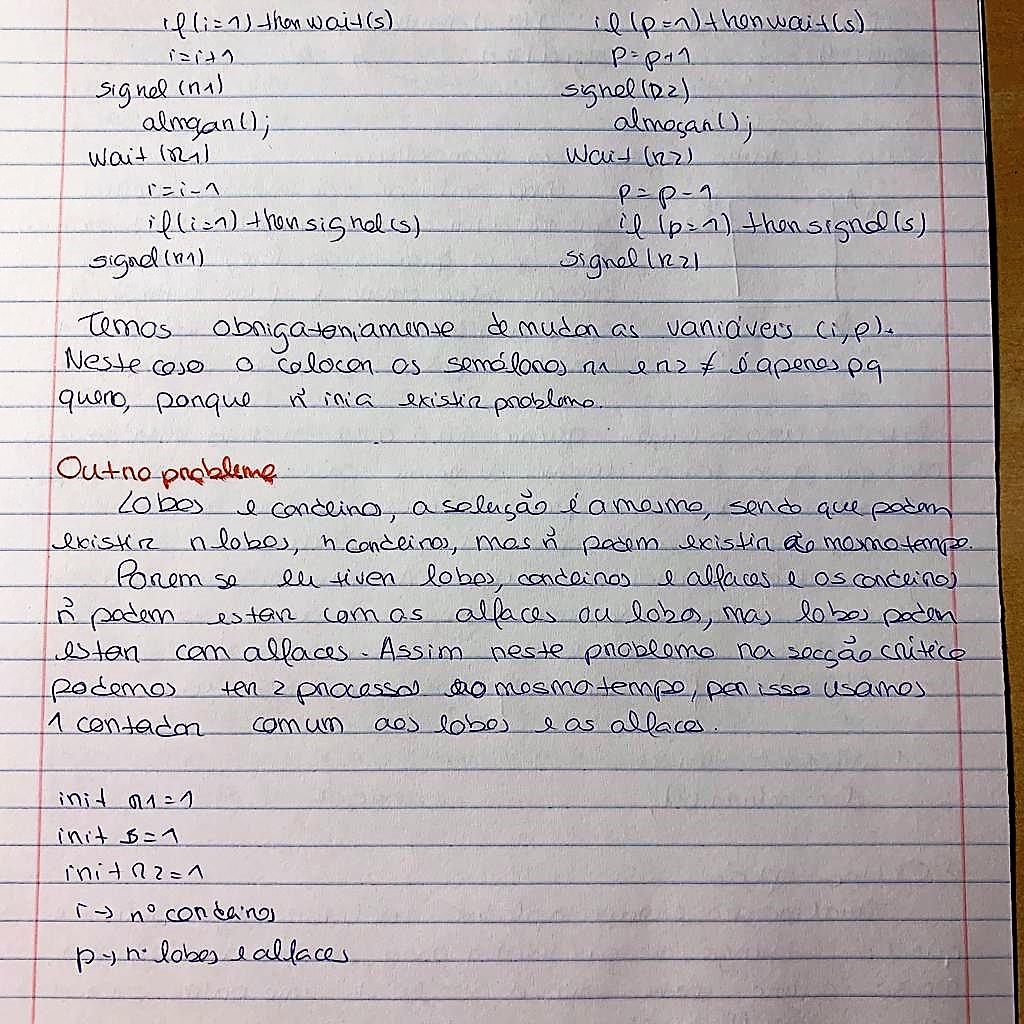 if (i=1) then wait(s) if (p=1) then wait(s)
i=i+1 p=p+1
signal (r1) signal (r2)
almoçar(); almoçar();
wait (r1) wait (r2)
i=i-1 p=p-1
if (i=1) then signal(s) if (p=1) then signal(s)
signal (r1) signal (r2)
Temos obrigatoriamente de mudar as variáveis (i,p).
Neste caso o colocar os semáforos r1 e r2 ≠ é apenas pq
quero, porque ñ iria existir problema.
Outro problema
Lobos e cordeiro, a solução é a mesma, sendo que podem
existir n lobos, n cordeiros, mas ñ podem existir ao mesmo tempo.
Porem se eu tiver lobos, cordeiros e alfaces e os cordeiros
ñ podem estar com as alfaces ou lobos, mas lobos podem
estar com alfaces. Assim neste problema na secção crítica
podemos ter 2 processos ao mesmo tempo, por isso usamos
1 contador comum aos lobos e as alfaces.
init r1=1
init s=1
init r2=1
i → nº cordeiros
p → nº lobos e alfaces